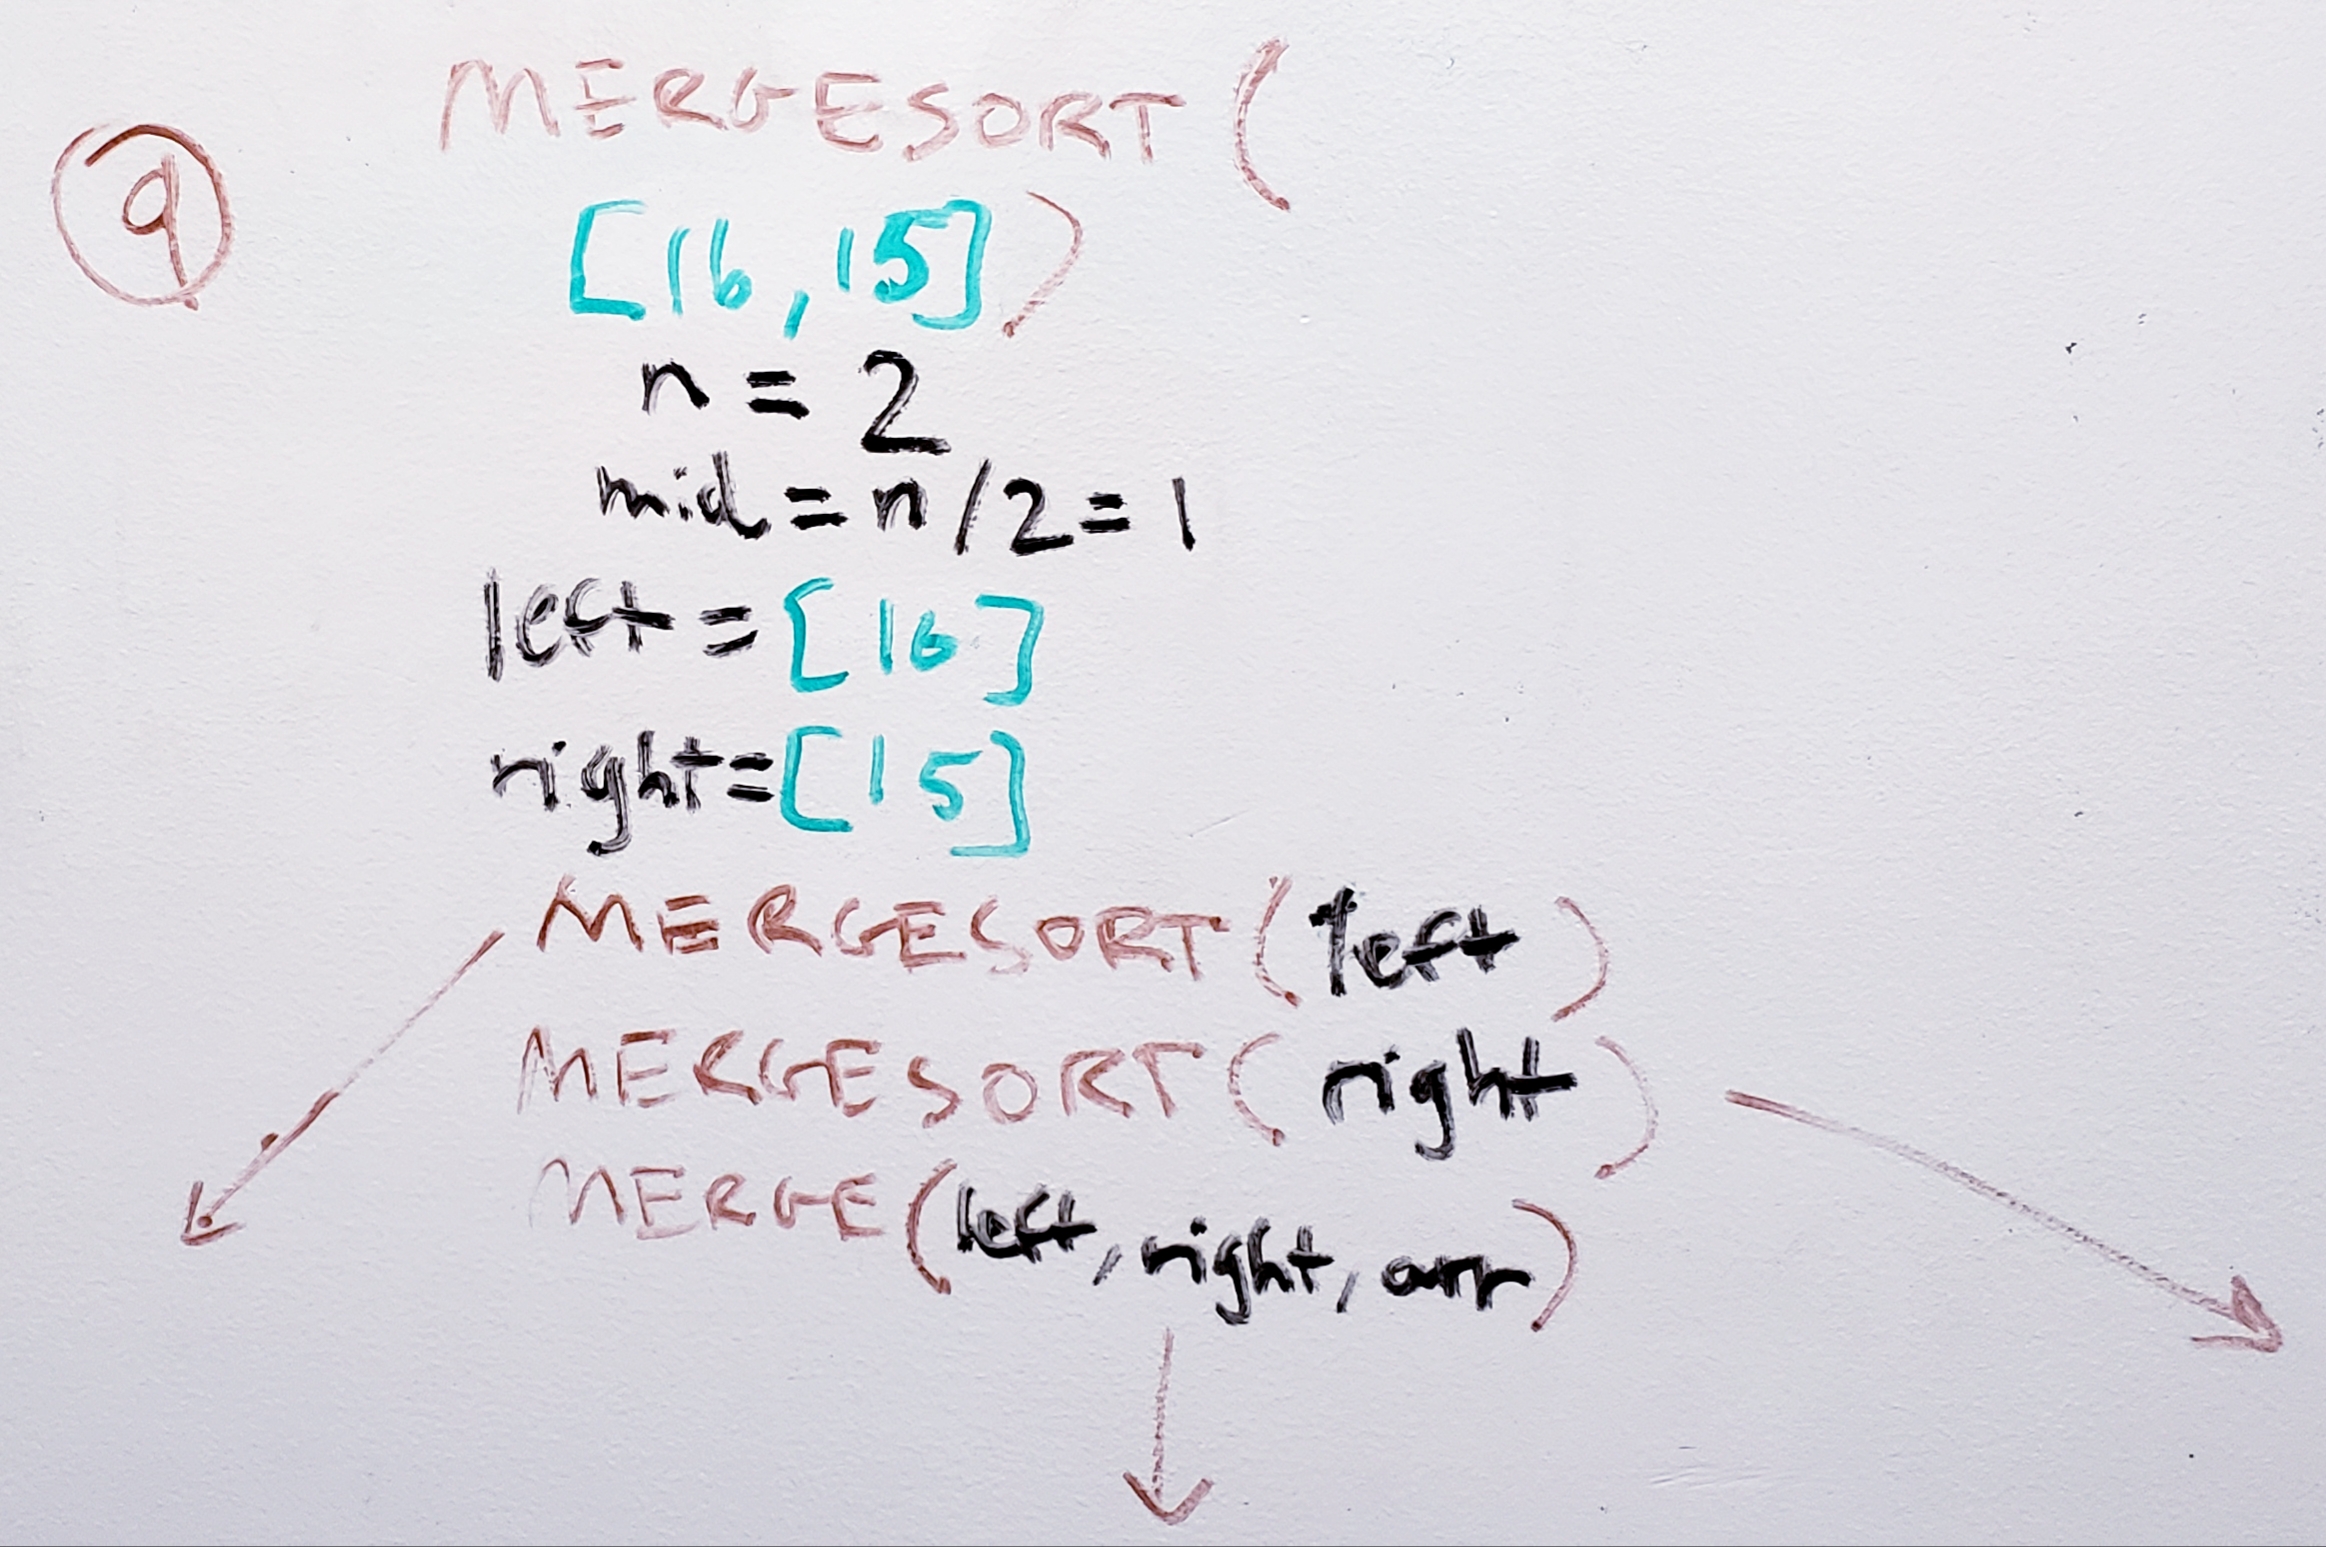 9
MERGESORT(
[16,15])
n = 2
mid = n/2 = 1
left = [16]
right = [15]
MERGESORT(left)
MERGESORT(right)
MERGE(left, right, arr)